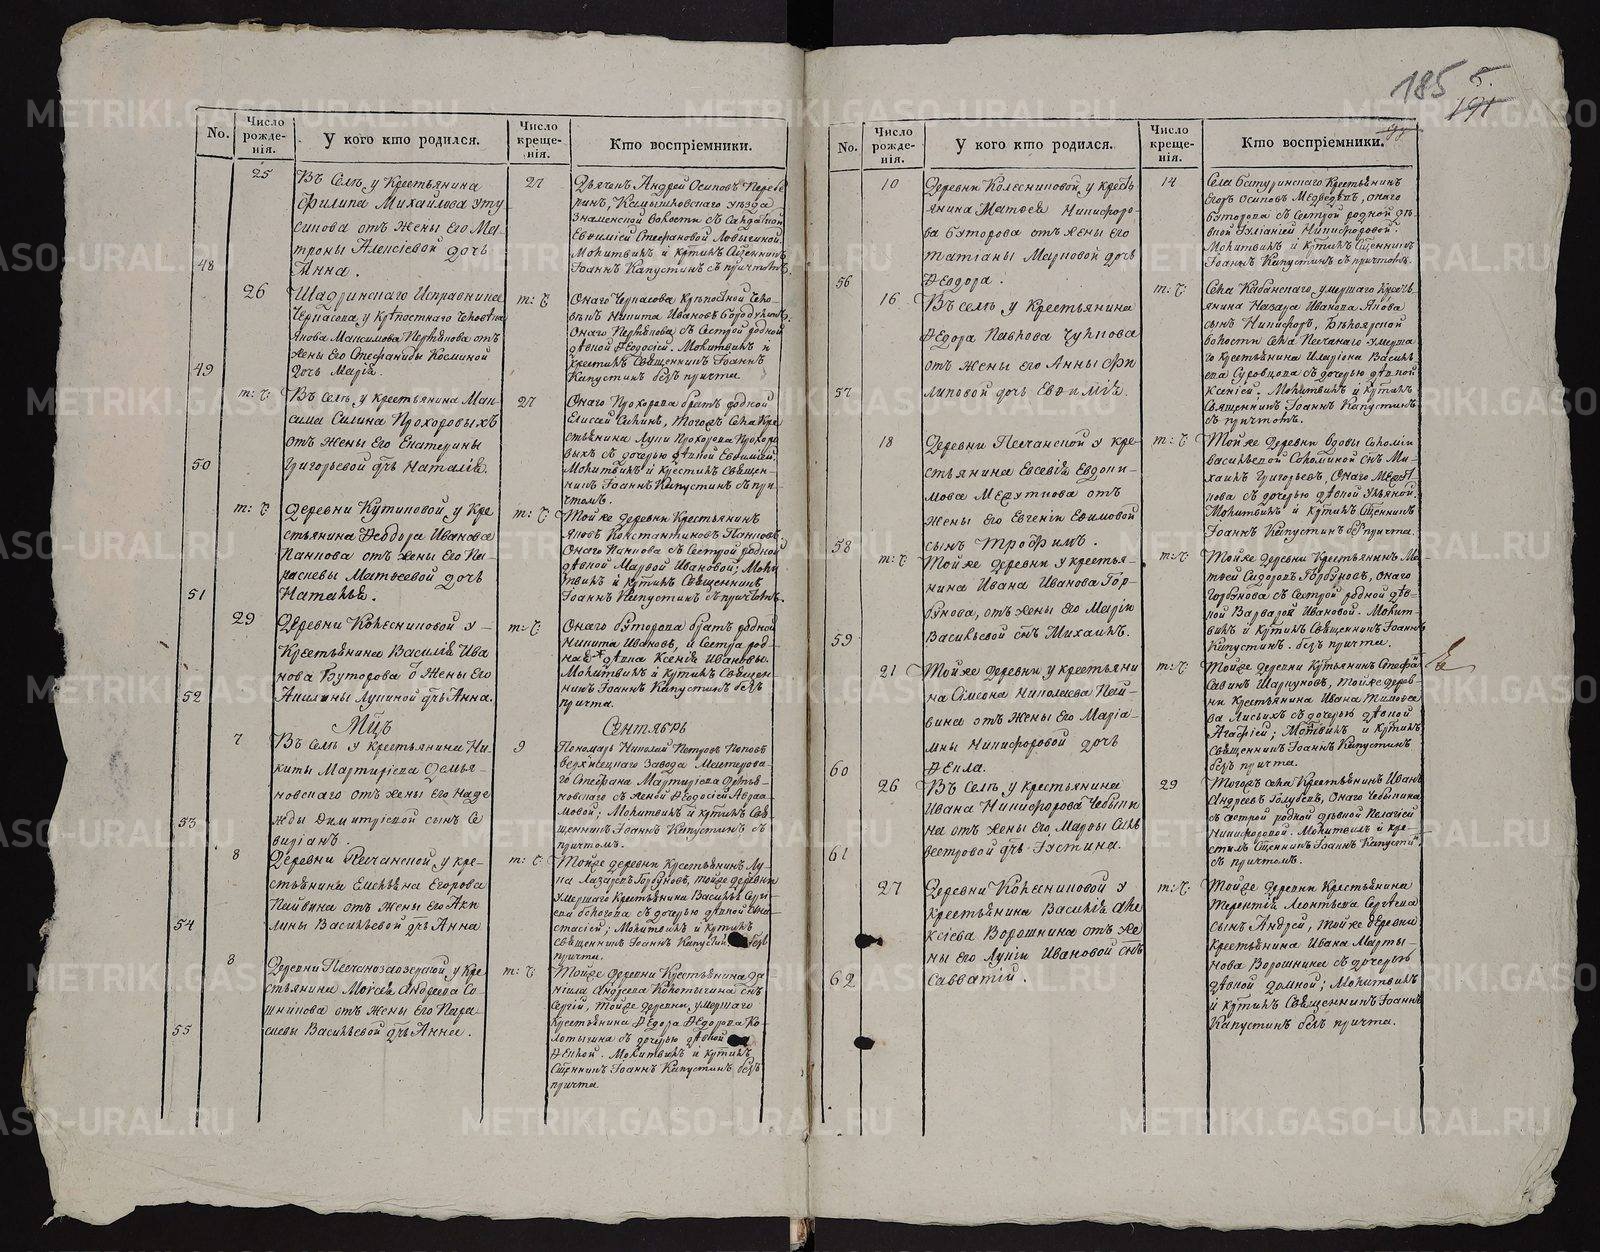 185 5.
191
No.
Число рожде-нія.
У кого кто родился.
Число креще-нія.
Кто воспріемники.
48
25
Въ Селѣ, у Крестьянина
Филипа Михайлова Уту
сикова отъ жены Его Ма-
троны Алексіевой дочь
Анна.
27
Дьячекъ Андрей Осиповъ
Знаменской волости съ
Евѳиміей Стефановой
Молитвилъ и кртилъ Сщенникъ
Іоаннъ Капустинъ съ причтомъ.
49
26
Шадринскаго Исправника
Черкасова, у Крѣпостнаго
Якова Максимова отъ
жены Его Стефаниды Косминой
дочь Марія.
т: ч.
Онаго Черкасова Крѣпостной
Никита Ивановъ
Онаго съ Сестрой родной
дѣвкой Ѳеодосіей. Молитвилъ и
крестилъ Священникъ Іоаннъ
Капустинъ безъ причта.
50
т: ч.
Въ Селѣ, у Крестьянина Мак
сима Силина Прохоровыхъ
отъ жены Его Екатерины
Григорьевой дчь Наталія.
27
Онаго Прохорова братъ родной
Елисей Силинъ, Тогожъ Села Кре
стьянина Луки Прохорова Прохоро
выхъ съ дочерью дѣвкой Евѳиміей.
Молитвилъ и Крестилъ Священ-
никъ Іоаннъ Капустинъ съ при-
чтомъ.
51
т: ч.
Деревни Кутиковой, у Кре
стьянина Ѳеодора Иванова
Панкова отъ жены Его Па-
расковьи Матѳеевой дочь
Наталья.
т: ч.
Тойже деревни Крестьянинъ
Яковъ Константиновъ Панковъ
Онаго Панкова съ Сестрой родной
дѣвкой Марѳой Ивановой; Моли
твилъ и кртилъ Священникъ
Іоаннъ Капустинъ съ причтомъ.
52
29
Деревни Колесниковой у
Крестьянина Василія Ива
нова Буторова о жены Его
Акилины Лукиной дчь Анна.
т: ч.
Онаго Буторова братъ родной
Никита Ивановъ, и Сестра род-
ная дѣвка Ксенія Ивановы.
Молитвилъ и кртилъ Священ-
никъ Іоаннъ Капустинъ безъ
причта.
Мцъ
Сентябрь
53
7
Въ Селѣ у Крестьянина Ни-
киты Мартиріева Демья-
новскаго отъ жены Его Наде
жды Димитріевой сынъ Се
виріанъ.
9
Пономарь Николай Петровъ Поповъ
Верхнецкаго Завода Мастерова-
го Стефана Мартиріева Демья-
новскаго съ женой Ѳеодосіей Авраа-
мовой; Молитвилъ и кртилъ Свя
щенникъ Іоаннъ Капустинъ съ
причтомъ.
54
8
Деревни Песчанской, у кре-
стьянина Емельяна Егорова
Пайвина отъ жены Его Аки
лины Васильевой дчь Анна
т: ч.
Тойже деревни Крестьянинъ Лу-
ка Лазаревъ Горбуновъ, тойже деревни
Умершаго Крестьянина Василья Сергі-
съ дочерью дѣвкой Ана-
стасіей; Молитвилъ и кртилъ
Священникъ Іоаннъ Капустинъ безъ
причта.
55
8
Деревни Песчанозаозерской, у Кре
стьянина Моисея Андреева Со
шникова отъ жены Его Пара-
скевы Васильевой дчь Анна.
т: ч.
Тойже деревни Крестьянина Да-
ніила Андреева Колотыгина снъ
Сергій, Тойже деревни, умершаго
Крестьянина Ѳедора Ѳедорова Ко-
лотыгина съ дочерью дѣвкой
Ѳеклой. Молитвилъ и кртилъ
Сщенникъ Іоаннъ Капустинъ безъ
причта
No.
Число рожде-нія.
У кого кто родился.
Число креще-нія.
Кто воспріемники.
56
10
Деревни Колесниковой, у Кресть
янина Матѳея Никифоро-
ва Буторова отъ жены Его
Татіаны Марковой дочь
Ѳеодора.
14
Села Батуринскаго Крестьянинъ
Егоръ Осиповъ Медведевъ, онаго
Буторова съ Сестрой родной дѣ-
вкой Улianіей Никифоровой.
Молитвилъ и кртилъ Сщенникъ
Іоаннъ Капустинъ съ причтомъ.
57
16
Въ селѣ, у Крестьянина
Ѳедора Павлова Чупкова
отъ жены Его Анны Фи
липовой дочь Евѳимія.
т: ч.
Села Кабанскаго, умершаго Кресть-
янина Назара Иванова Якова
сынъ Никифоръ, Бѣлоярской
волости Села Песчанаго умерша
го Крестьянина Иларіона Василь-
ева Суровцова съ дочерью дѣвкой
Ксеніей. Молитвилъ и кртилъ
Священникъ Іоаннъ Капустинъ
съ причтомъ.
58
18
Деревни Песчанской у кре-
стьянина Евсевія Евдоки-
мова отъ
жены Его Евгеніи Еѳимовой
сынъ Трофимъ.
т: ч.
Тойже деревни Вдовы Соломіи
Васильевой Соколиной снъ Ми-
хаилъ Григорьевъ, Онаго
съ дочерью дѣвкой Ульяной.
Молитвилъ и кртилъ Сщенникъ
Іоаннъ Капустинъ безъ причта.
59
т: ч.
Тойже деревни у крестья-
нина Ивана Иванова Гор-
бунова, отъ жены Его Маріи
Васильевой снъ Михаилъ.
т: ч.
Тойже деревни Крестьянинъ Ма-
тѳей Сидоровъ Горбуновъ, Онаго
Горбунова съ Сестрой родной дѣв-
кой Варварой Ивановой. Молит-
вилъ и кртилъ Священникъ Іоаннъ
Капустинъ безъ причта.
60
21
Тойже Деревни у крестьяни
на Симеона Николаева Пай-
вина отъ жены Его Маріа-
мны Никифоровой дочь
Ѳекла.
т: ч.
Тойже деревни Крстьянинъ Стефанъ
Савинъ Шаркуновъ, Тойже дерев-
ни Крестьянина Ивана Тимоѳее
ва Лисьихъ съ дочерью дѣвкой
Агафіей; Молитвилъ и кртилъ
Священникъ Іоаннъ Капустинъ
безъ причта.
61
26
Въ Селѣ у крестьянина
Ивана Никифорова Чебыки
на отъ жены Его Марѳы Силь
вестровой дчь Іустина.
29
Тогожъ села Крестьянинъ Иванъ
Андреевъ Голубевъ, Онаго Чебыкина
съ сестрой родной дѣвкой Пелагіей
Никифоровой. Молитвилъ и кре-
стилъ Сщенникъ Іоаннъ Капустинъ
съ причтомъ.
62
27
Деревни Колесниковой у
крестьянина Василія Але
ксіева Ворошнина отъ же
ны Его Лукіи Ивановой снъ
Савватій.
т: ч.
Тойже деревни Крестьянина
Терентія Леонтьева Сергѣева
сынъ Андрей, Тойже деревни
Крестьянина Ивана Марты-
нова Ворошнина съ дочерью
дѣвкой Домной; Молитвилъ
и кртилъ Священникъ Іоаннъ
Капустинъ безъ причта.
METRIKI.GASO-URAL.RU